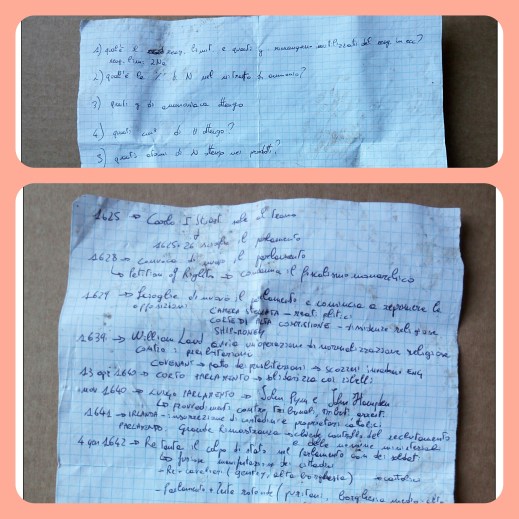 1) qual è il reag. limit. e quanti g rimangono inutilizzati del reag. in ecc?
reag. lim: 2Na
2) qual è la % di N nel nitrato di ammonio?
3) quanti g di ammoniaca ottengo
4) quanti cm³ di H ottengo?
5) quanti atomi di N ottengo nei prodotti?
1625 → Carlo I Stuart sale al trono
1625 + 26 scioglie il parlamento
1628 → convoca di nuovo il parlamento
↳ Petition of Rights → condanna il fiscalismo monarchico
1629 → Scioglie di nuovo il parlamento e comincia a reprimere le
opposizioni: CAMERA STELLATA → reati politici
CORTE DI ALTA COMMISSIONE → dissidenza religiosa
SHIP-MONEY
1639 → William Laud avvia un'operazione di normalizzazione religiosa
contro i presbiteriani
COVENANT → patto dei presbiteriani → scozzesi invadono
13 apr 1640 → CORTO PARLAMENTO →
nov 1640 → LUNGO PARLAMENTO → John Pym e John Hampden
↳ provvedimenti contro tribunali, tributi
1641 → IRLANDA → insurrezione di contadini e proprietari cattolici
PARLAMENTO: Grande Rimostranza richiede controllo del reclutamento
e delle nomine ministeriali
4 gen 1642 → Re tenta il colpo di stato sul Parlamento con dei soldati
↳ manifestazione dei cittadini
- Re → cavalieri (gentry, alta borghesia)
- Parlamento → Teste rotonde (puritani, borghesia medio-alta